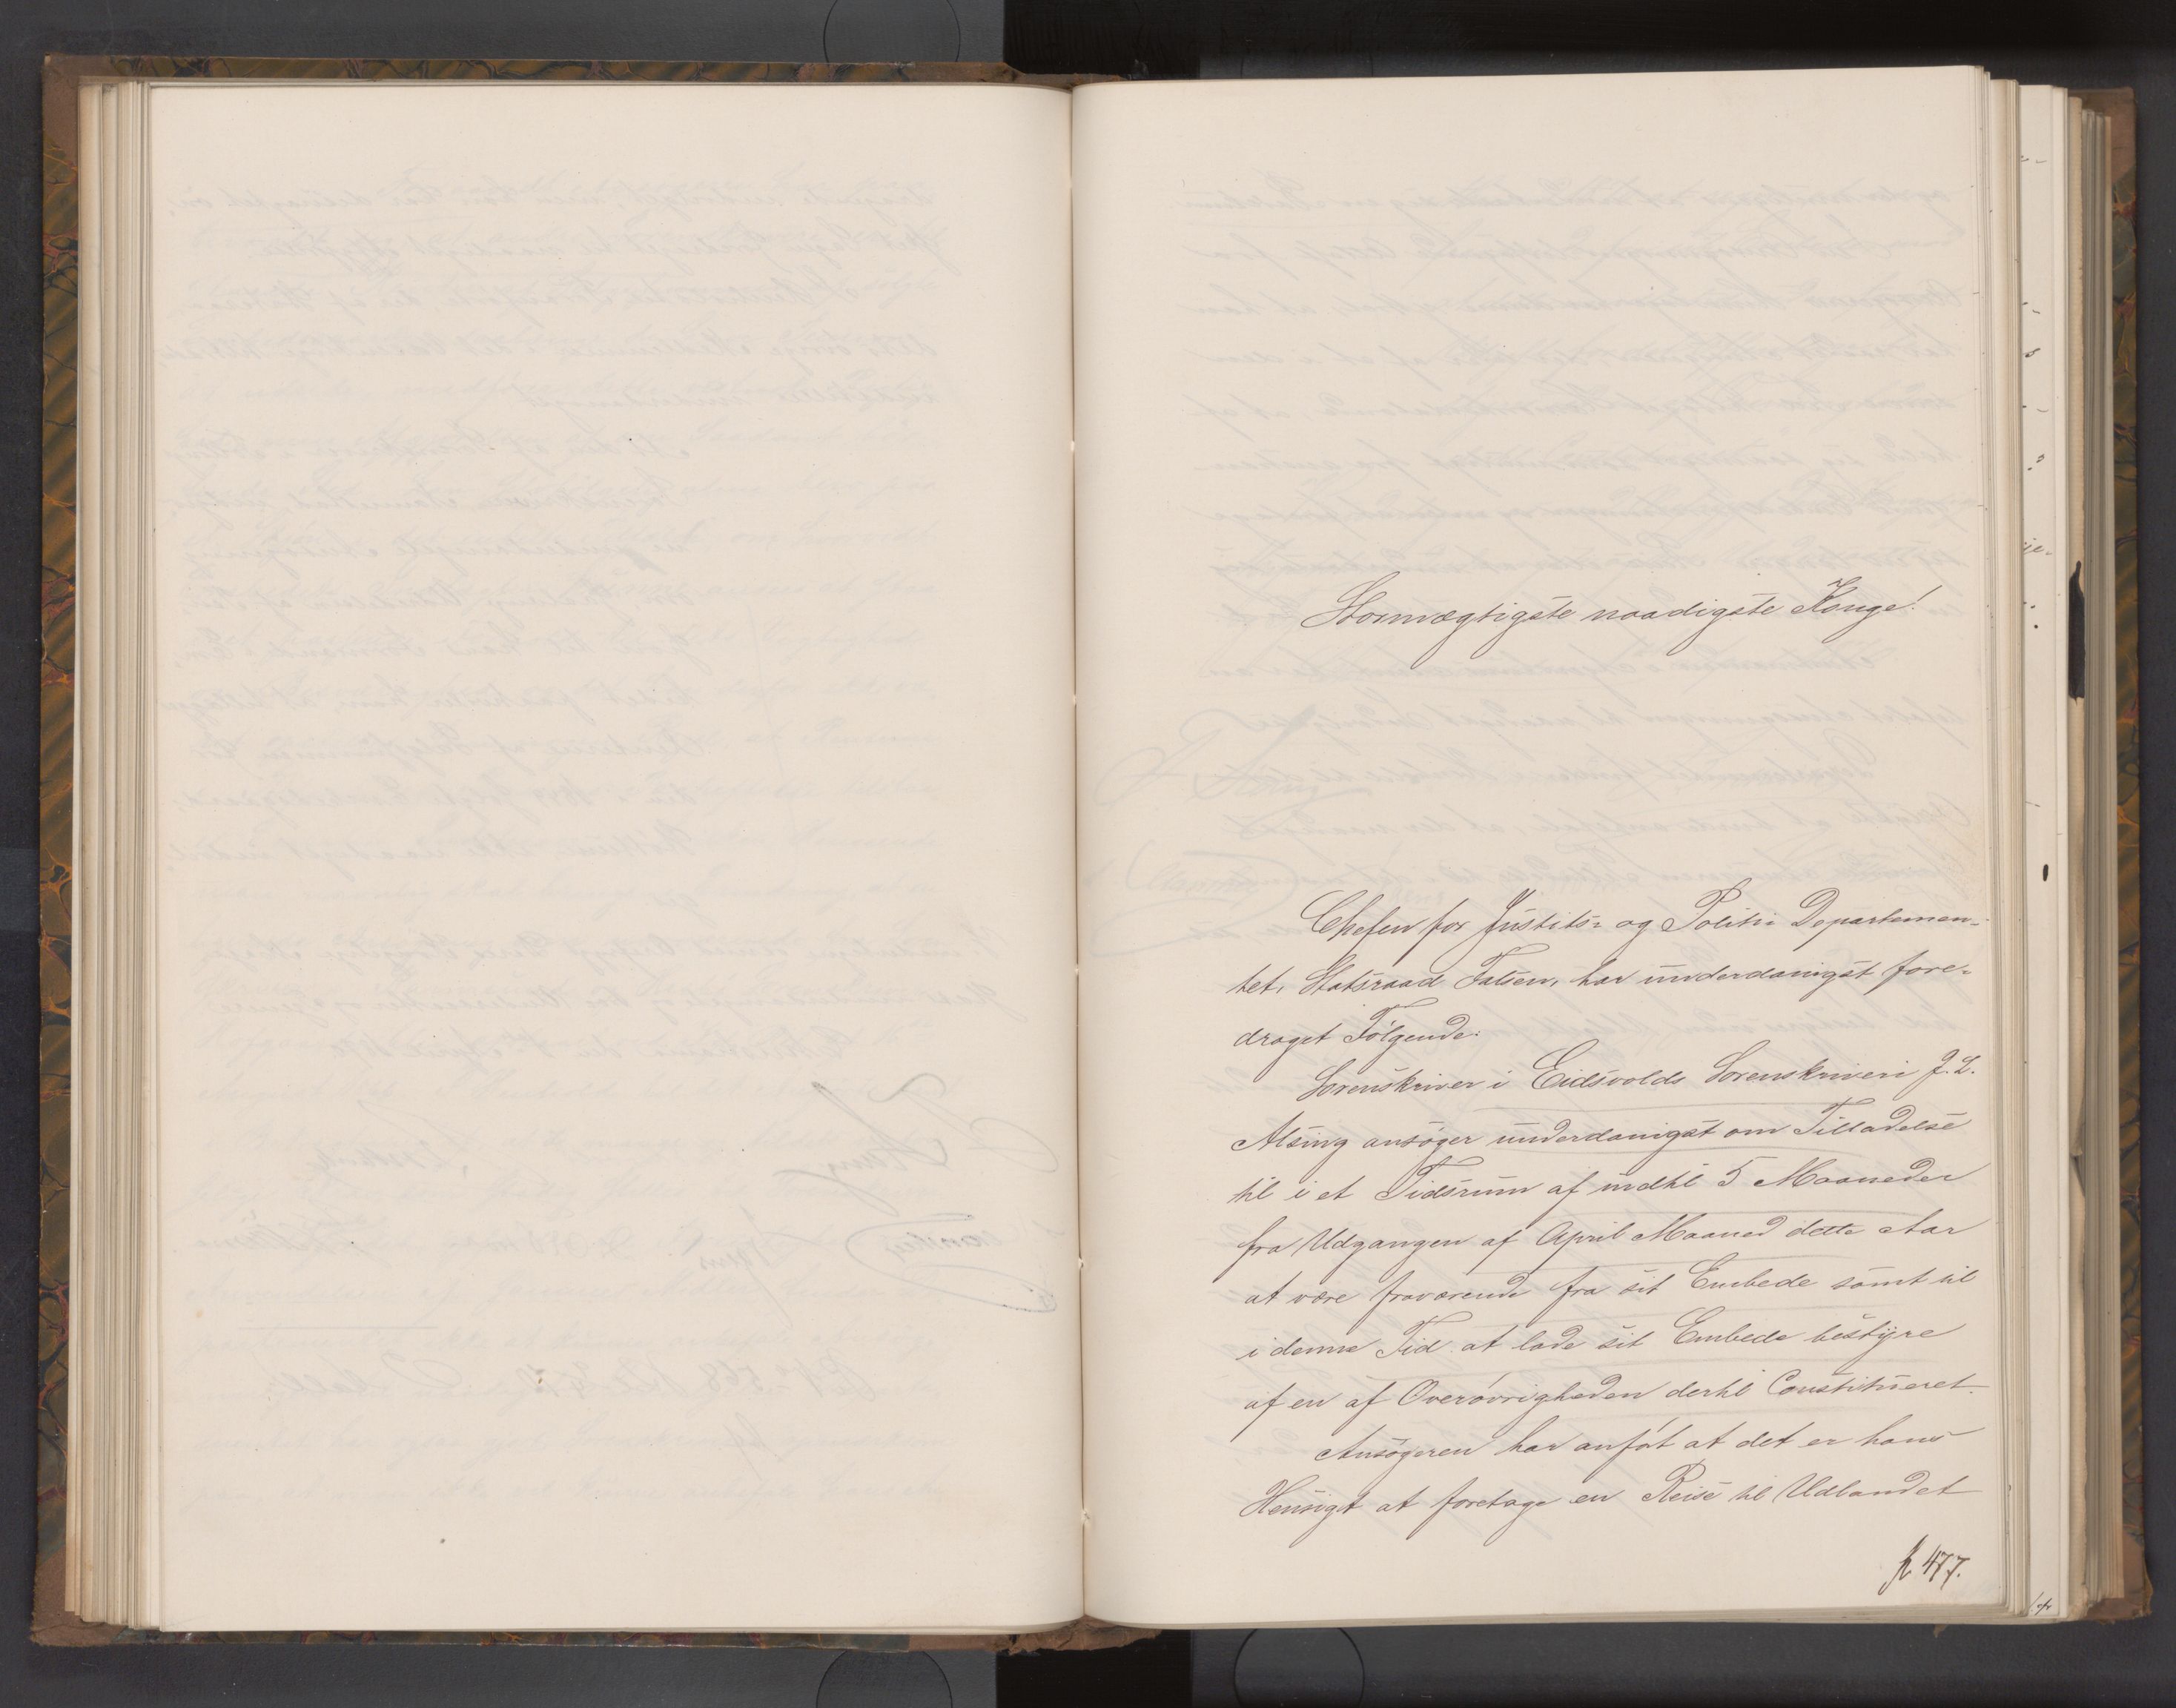 Stormægtigste naadigste Konge!
Chefen for Justits- og Politi Departemen-
tet, Statsraad Falsen, har underdanigst fore-
draget Følgende:
Sorenskriver i Eidsvolds Sorenskriveri J. L.
Alsing ansøger underdanigst om Tilladelse
til i et Tidsrum af indtil 5 Maaneder
fra Udgangen af April Maaned dette Aar
at være fraværende fra sit Embede samt til
i denne Tid at lade sit Embede bestyre
af en af Overøvrigheden dertil Constitueret.
Ansøgeren har anført at det er hans
Hensigt at foretage en Reise til Udlandet
477.